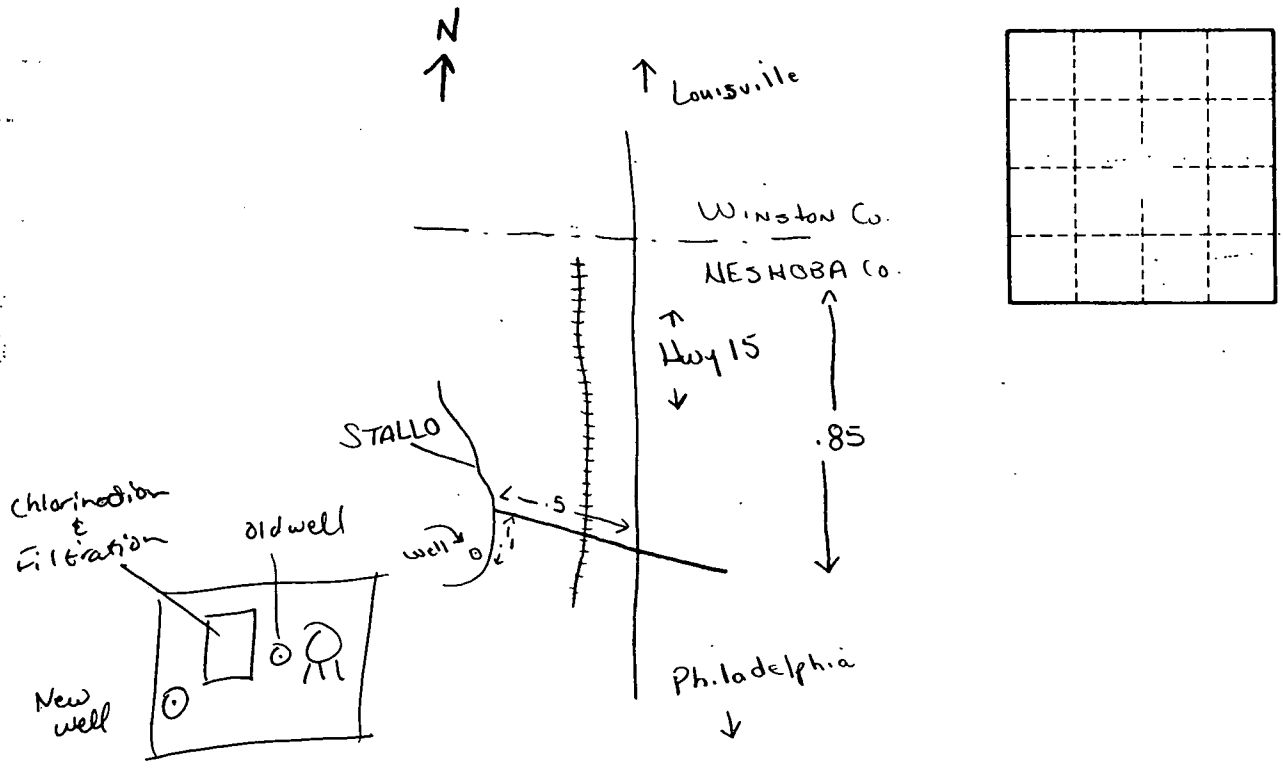 N
Louisville
WINSTON Co.
NESHOBA Co.
Hwy 15
.85
STALLO
.5
Chlorination
&
Filtration
old well
well
.1
New
well
Philadelphia